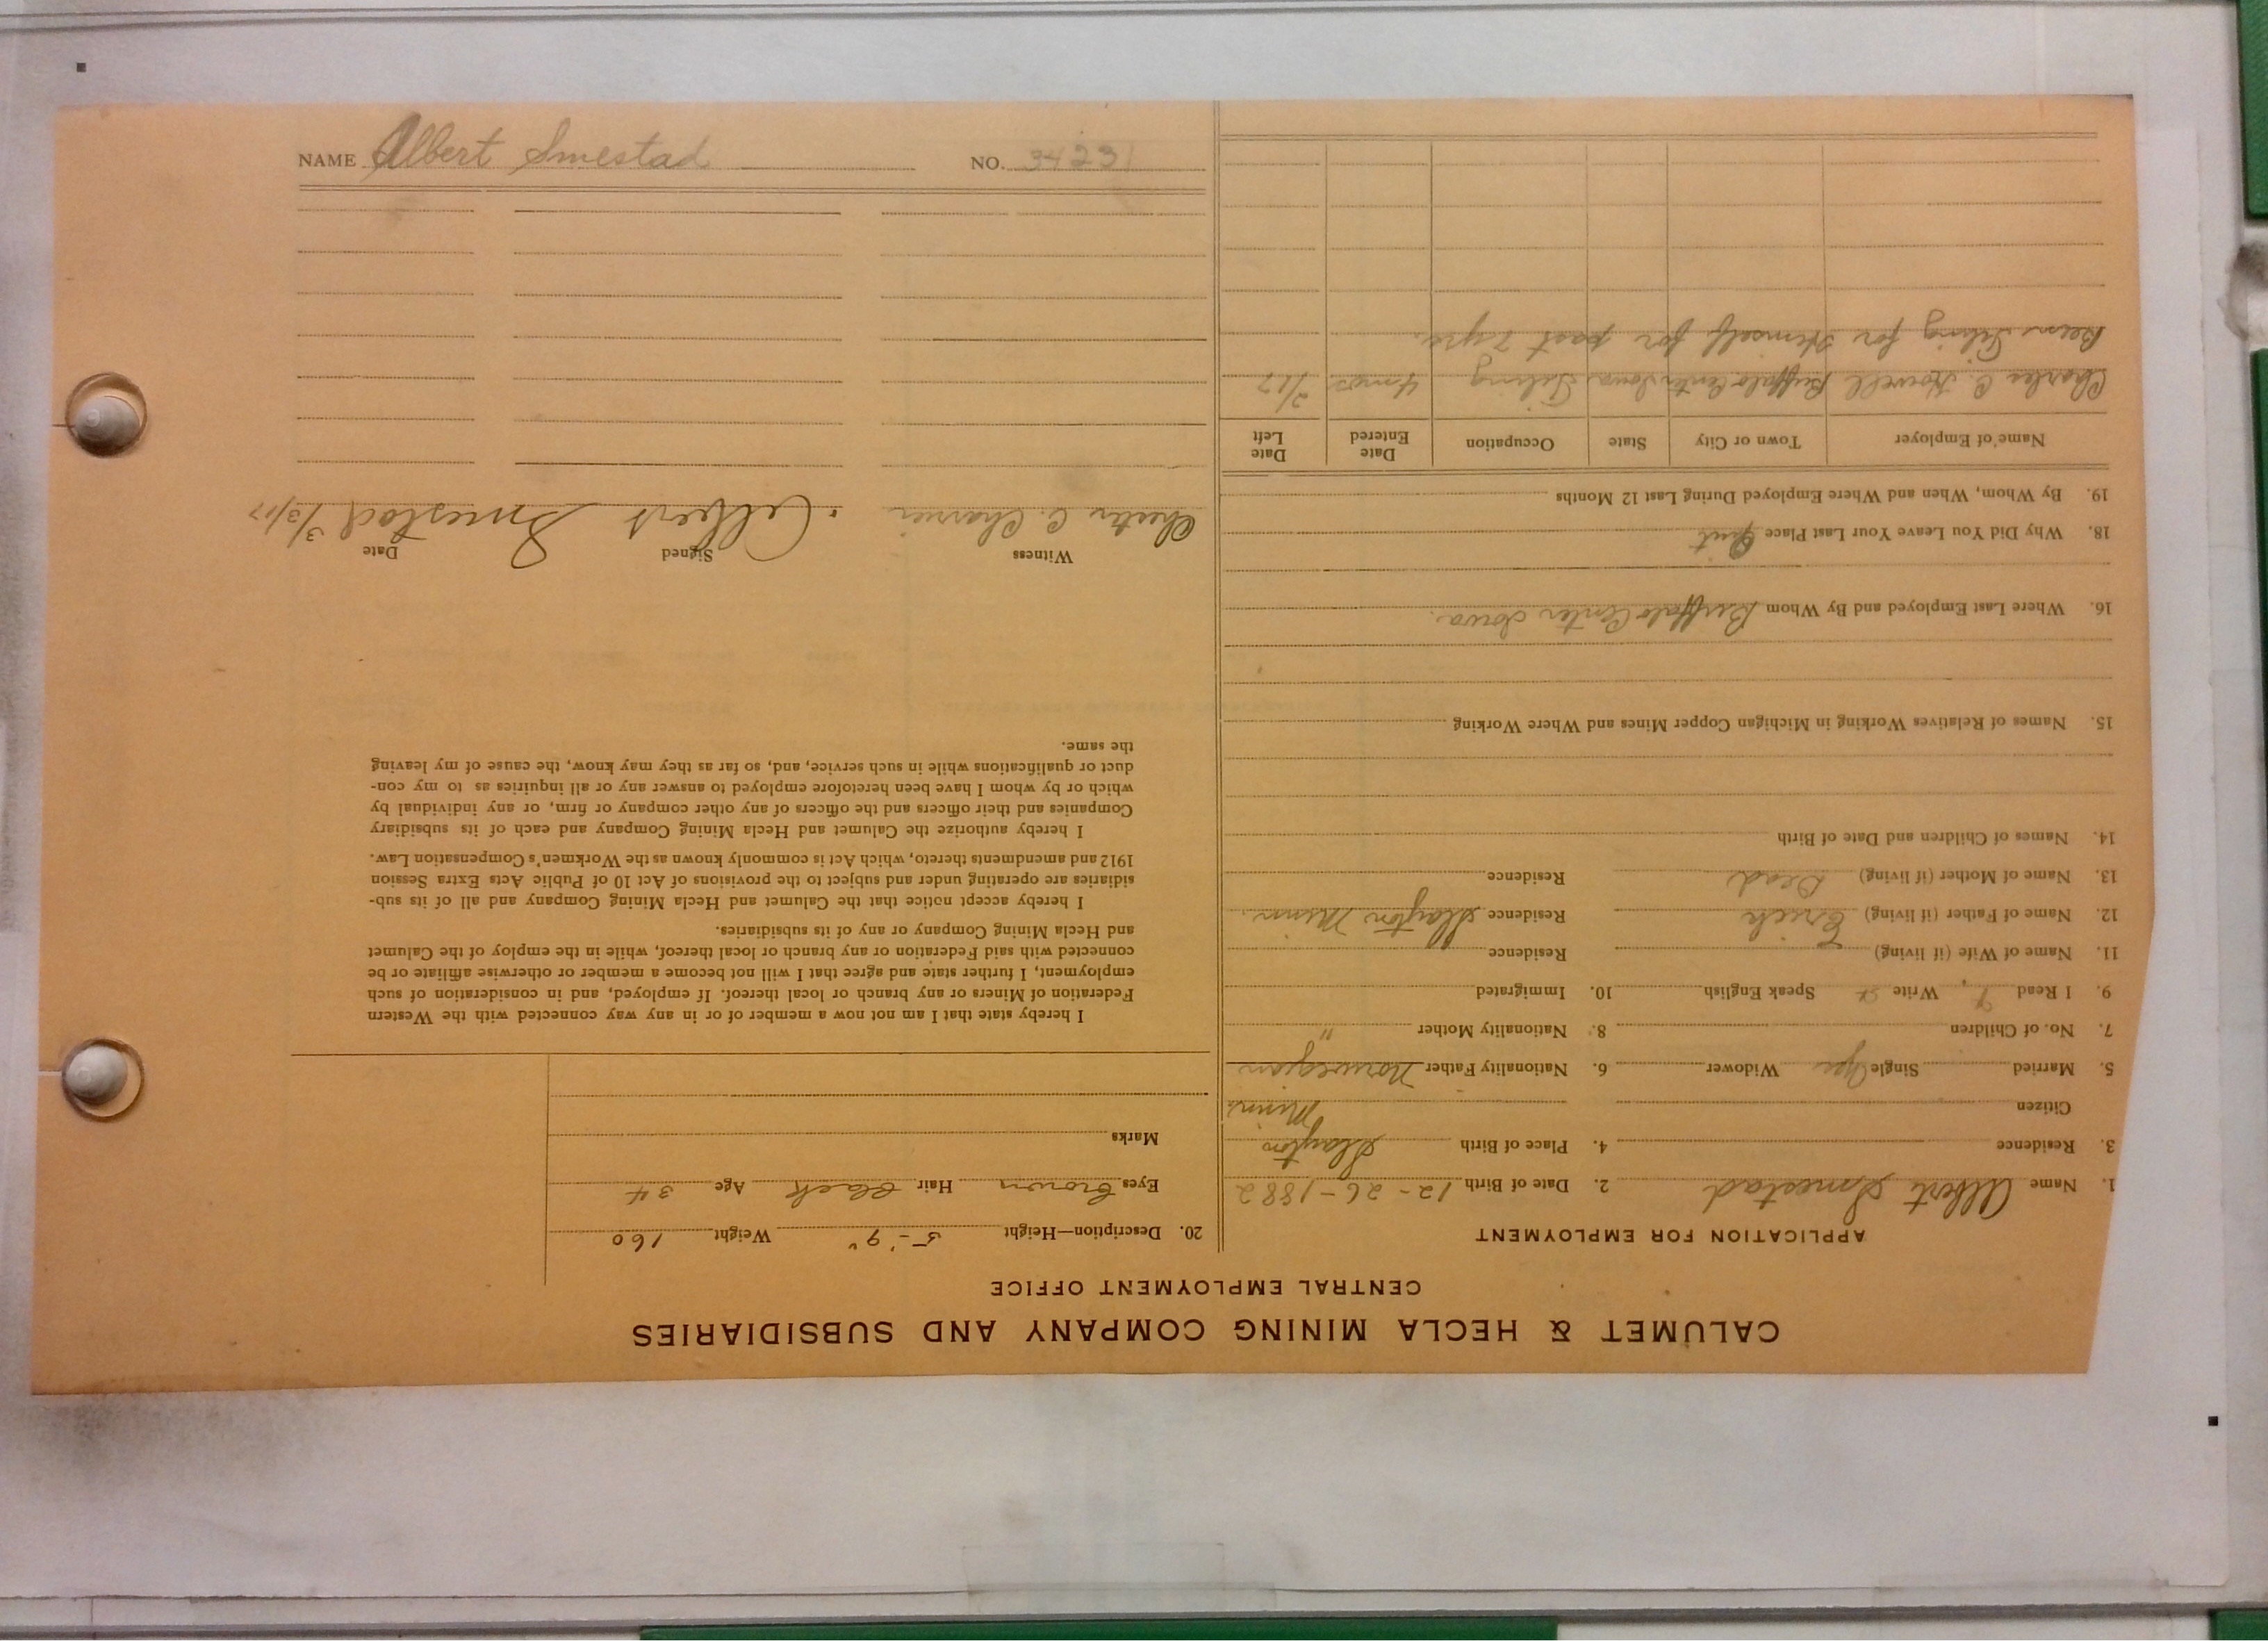 NAME Albert Smestad NO. 34231
CALUMET & HECLA MINING COMPANY AND SUBSIDIARIES
CENTRAL EMPLOYMENT OFFICE
APPLICATION FOR EMPLOYMENT
1. Name Albert Smestad 2. Date of Birth 12-26-1882
3. Residence 4. Place of Birth Slayton
Citizen Minn
5. Married Single Yes Widower 6. Nationality Father Norwegian
7. No. of Children 8. Nationality Mother "
9. I Read Write Speak English 10. Immigrated
11. Name of Wife (if living) Residence
12. Name of Father (if living) Erick Residence Slayton Minn.
13. Name of Mother (if living) Dead Residence
14. Names of Children and Date of Birth
15. Names of Relatives Working in Michigan Copper Mines and Where Working
16. Where Last Employed and By Whom Buffalo Center Iowa.
18. Why Did You Leave Your Last Place Quit
19. By Whom, When and Where Employed During Last 12 Months
Name of Employer Town or City State Occupation Date Entered Date Left
Charles C. Howell Buffalo Center Iowa Tiling 4 mos 2/17
Been Tiling for Himself for past 7 yrs.
20. Description—Height 5-'9" Weight 160
Eyes Brown Hair Black Age 34
Marks
I hereby state that I am not now a member of or in any way connected with the Western
Federation of Miners or any branch or local thereof. If employed, and in consideration of such
employment, I further state and agree that I will not become a member or otherwise affiliate or be
connected with said Federation or any branch or local thereof, while in the employ of the Calumet
and Hecla Mining Company or any of its subsidiaries.
I hereby accept notice that the Calumet and Hecla Mining Company and all of its sub-
sidiaries are operating under and subject to the provisions of Act 10 of Public Acts Extra Session
1912 and amendments thereto, which Act is commonly known as the Workmen's Compensation Law.
I hereby authorize the Calumet and Hecla Mining Company and each of its subsidiary
Companies and their officers and the officers of any other company or firm, or any individual by
which or by whom I have been heretofore employed to answer any or all inquiries as to my con-
duct or qualifications while in such service, and, so far as they may know, the cause of my leaving
the same.
Witness Signed Date
Chester C. Albert Smestad 3/3/17